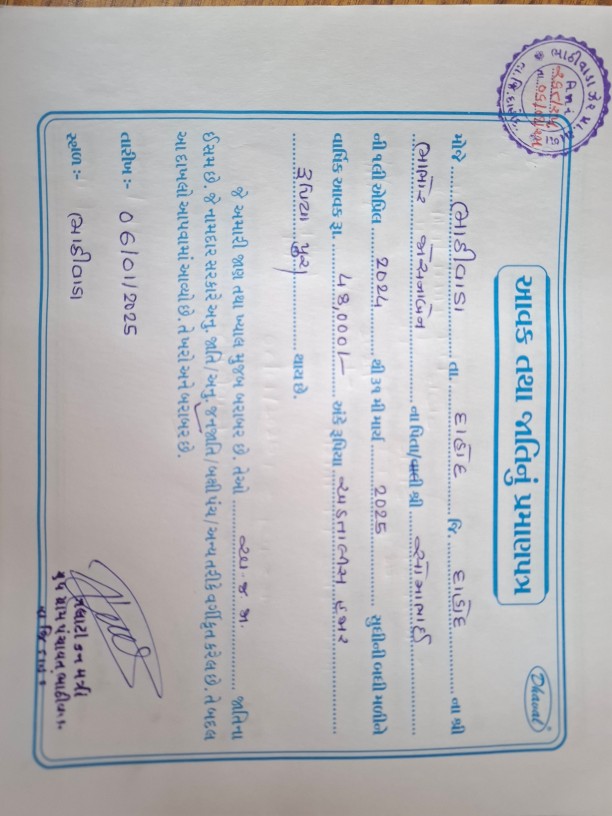 આવક તથા જાતિનું પ્રમાણપત્ર
Dhaval
મોજે ભાઠીવાડા તા. દાહોદ જિ. દાહોદ ના શ્રી
ભાભોર ના પિતા/વાલી શ્રી સોમાભાઈ
ની ૧લી એપ્રિલ 2024 થી ૩૧ મી માર્ચ 2025 સુધીની બધી મળીને
વાર્ષિક આવક રૂા. 48,000/- અંકે રૂપિયા અડતાલીસ હજાર
રૂપિયા પુરા થાય છે.
જે અમારી જાણ તથા ખ્યાલ મુજબ બરાબર છે. તેઓ અ.જ.જા. જાતિના
ઈસમ છે. જે નામદાર સરકારે અનુ જાતિ/અનુ જનજાતિ/બક્ષી પંચ/અન્ય તરીકે વર્ગીકૃત કરેલ છે. તે બદલ
આ દાખલો આપવામાં આવ્યો છે. તે ખરો અને બરાબર છે.
તારીખ:- 06/01/2025
સ્થળ:- ભાઠીવાડા
તલાટી કમ મંત્રી
ગ્રુપ ગ્રામ પંચાયત ભાઠીવાડા